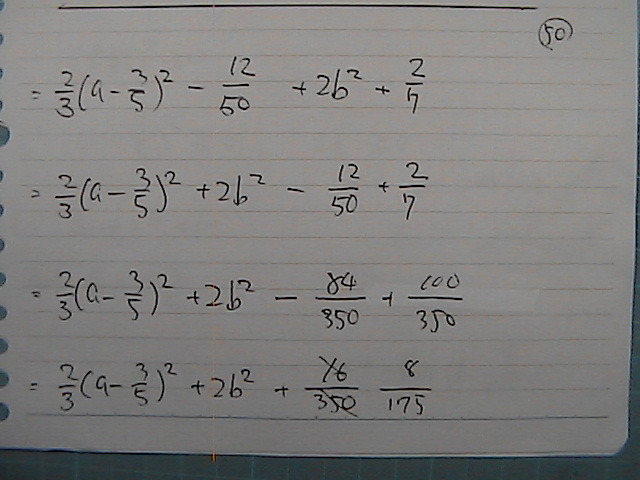 50
= 2/3 (a - 3/5)² - 12/50 + 2b² + 2/7
= 2/3 (a - 3/5)² + 2b² - 12/50 + 2/7
= 2/3 (a - 3/5)² + 2b² - 84/350 + 100/350
= 2/3 (a - 3/5)² + 2b² + 16/350 8/175